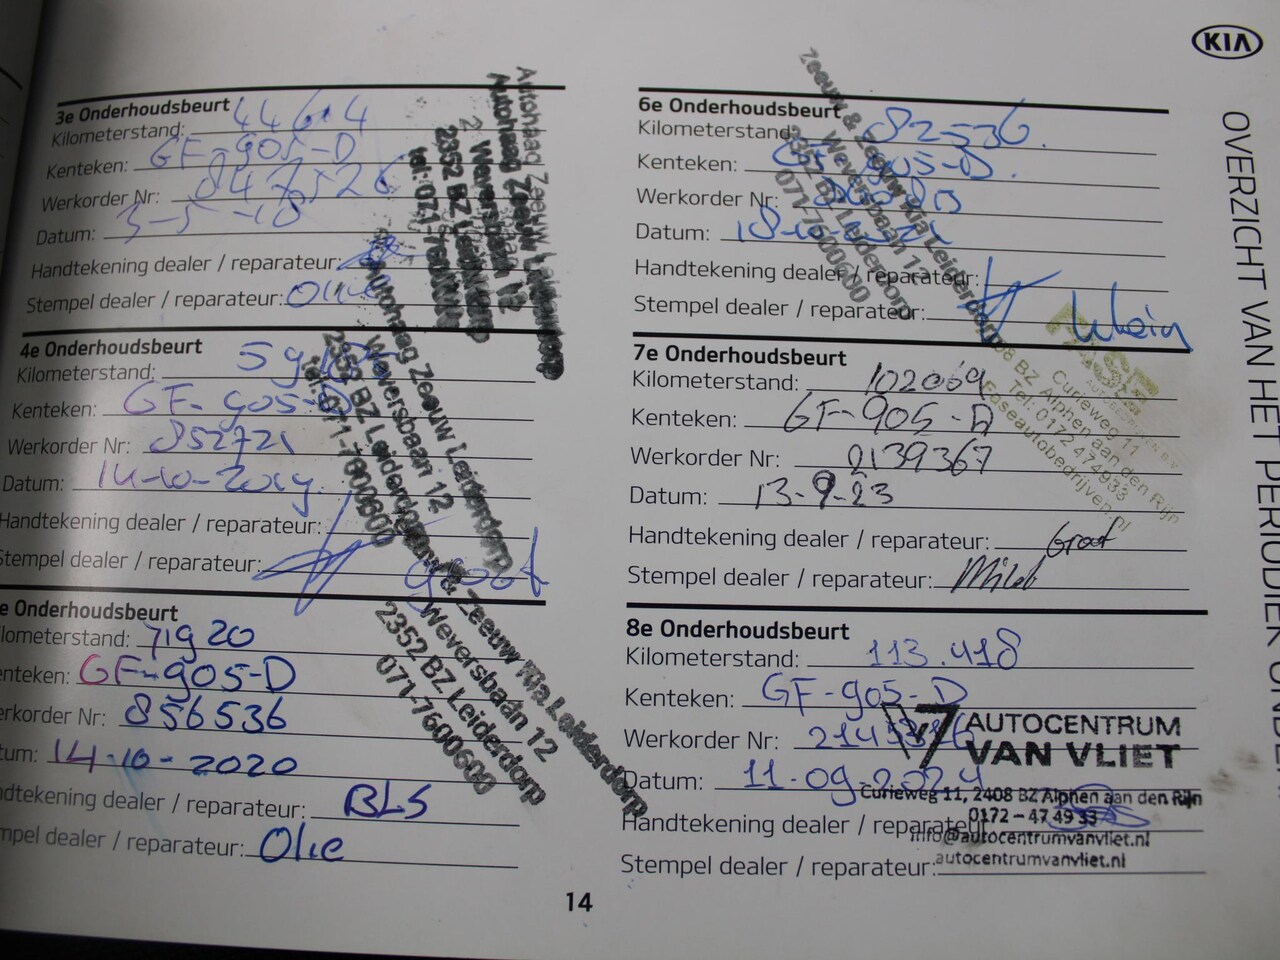 KIA
OVERZICHT VAN HET PERIODIEK
3e Onderhoudsbeurt
Kilometerstand: 44614
Kenteken: GF-905-D
Werkorder Nr: 847526
Datum: 3-5-18
Handtekening dealer / reparateur:
Stempel dealer / reparateur: Olie
Autohaag Zeeuw Leiderdorp
Weversbaan 12
2352 BZ Leiderdorp
tel: 071-7600600
4e Onderhoudsbeurt
Kilometerstand:
Kenteken: GF-905-D
Werkorder Nr: 852721
Datum: 14-10-2019
Handtekening dealer / reparateur:
Stempel dealer / reparateur: groot
Autohaag Zeeuw Leiderdorp
Weversbaan 12
2352 BZ Leiderdorp
tel: 071-7600600
e Onderhoudsbeurt
ilometerstand: 71920
enteken: GF-905-D
erkorder Nr: 856536
tum: 14-10-2020
ndtekening dealer / reparateur: BLS
mpel dealer / reparateur: Olie
Zeeuw & Zeeuw Kia Leiderdorp
Weversbaan 12
2352 BZ Leiderdorp
071-7600600
6e Onderhoudsbeurt
Kilometerstand: 82536
Kenteken: GF-905-D
Werkorder Nr:
Datum:
Handtekening dealer / reparateur:
Stempel dealer / reparateur: klein
Zeeuw & Zeeuw Kia Leiderdorp
Weversbaan 12
2352 BZ Leiderdorp
071-7600600
7e Onderhoudsbeurt
Kilometerstand: 102069
Kenteken: GF-905-D
Werkorder Nr: 2139367
Datum: 13-9-23
Handtekening dealer / reparateur: Groot
Stempel dealer / reparateur:
FASE
Curieweg 11
BZ Alphen aan den Rijn
Tel: 0172 474933
Faseautobedrijven.nl
8e Onderhoudsbeurt
Kilometerstand: 113.418
Kenteken: GF-905-D
Werkorder Nr:
Datum: 11-09-2024
Handtekening dealer / reparateur:
Stempel dealer / reparateur:
AUTOCENTRUM
VAN VLIET
Curieweg 11, 2408 BZ Alphen aan den Rijn
0172 - 47 49 33
info@autocentrumvanvliet.nl
autocentrumvanvliet.nl
14